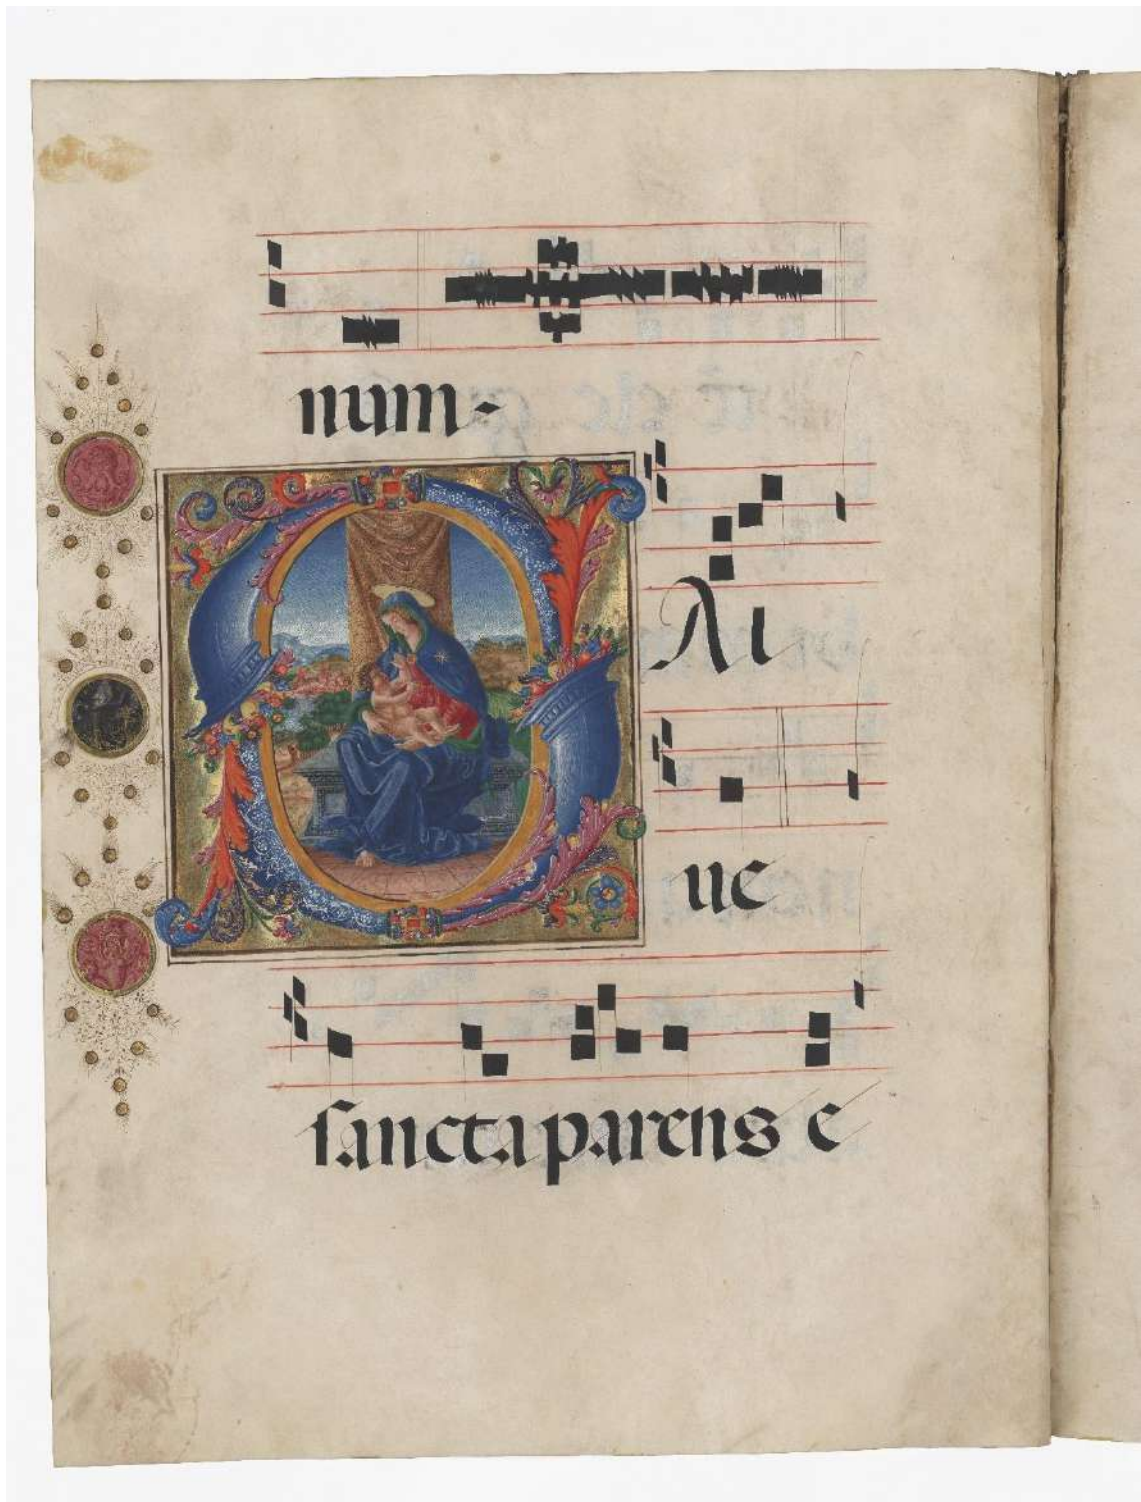 num-
SAl
ue
sancta parens e